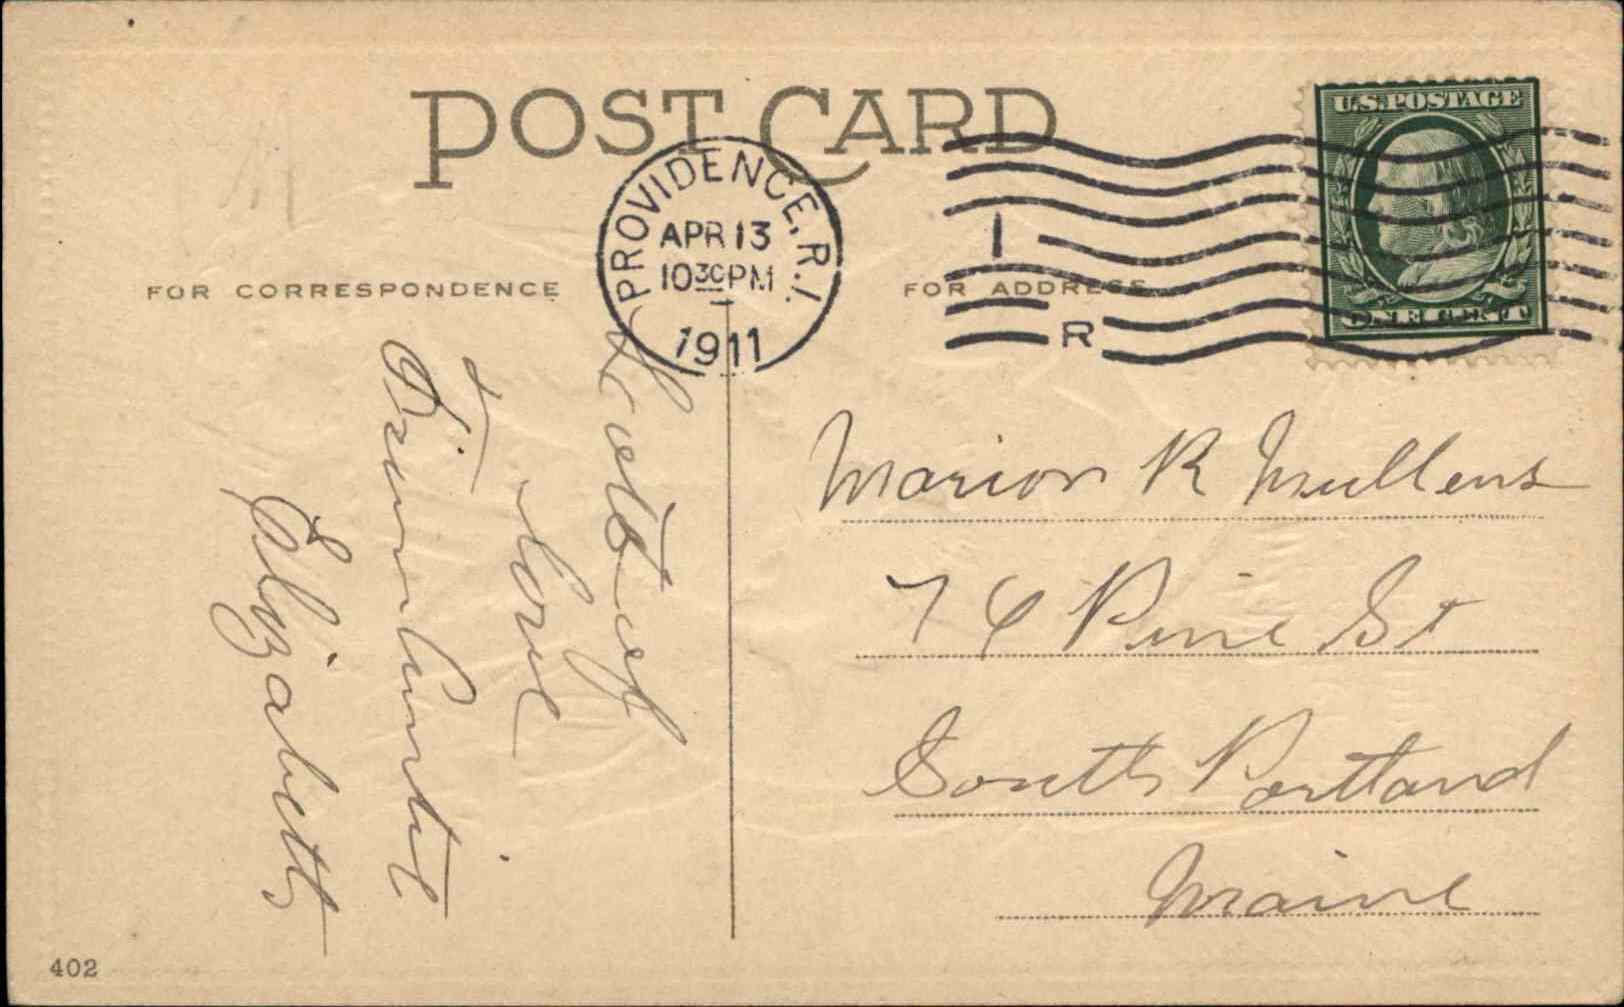 POST CARD
U.S. POSTAGE
ONE CENT
PROVIDENCE, R.I.
APR 13
10 30 PM
1911
1
R
FOR CORRESPONDENCE
FOR ADDRESS
Lots of
Love
From Auntie
Elizabeth
Marion R Mullens
76 Pine St
South Portland
Maine
402